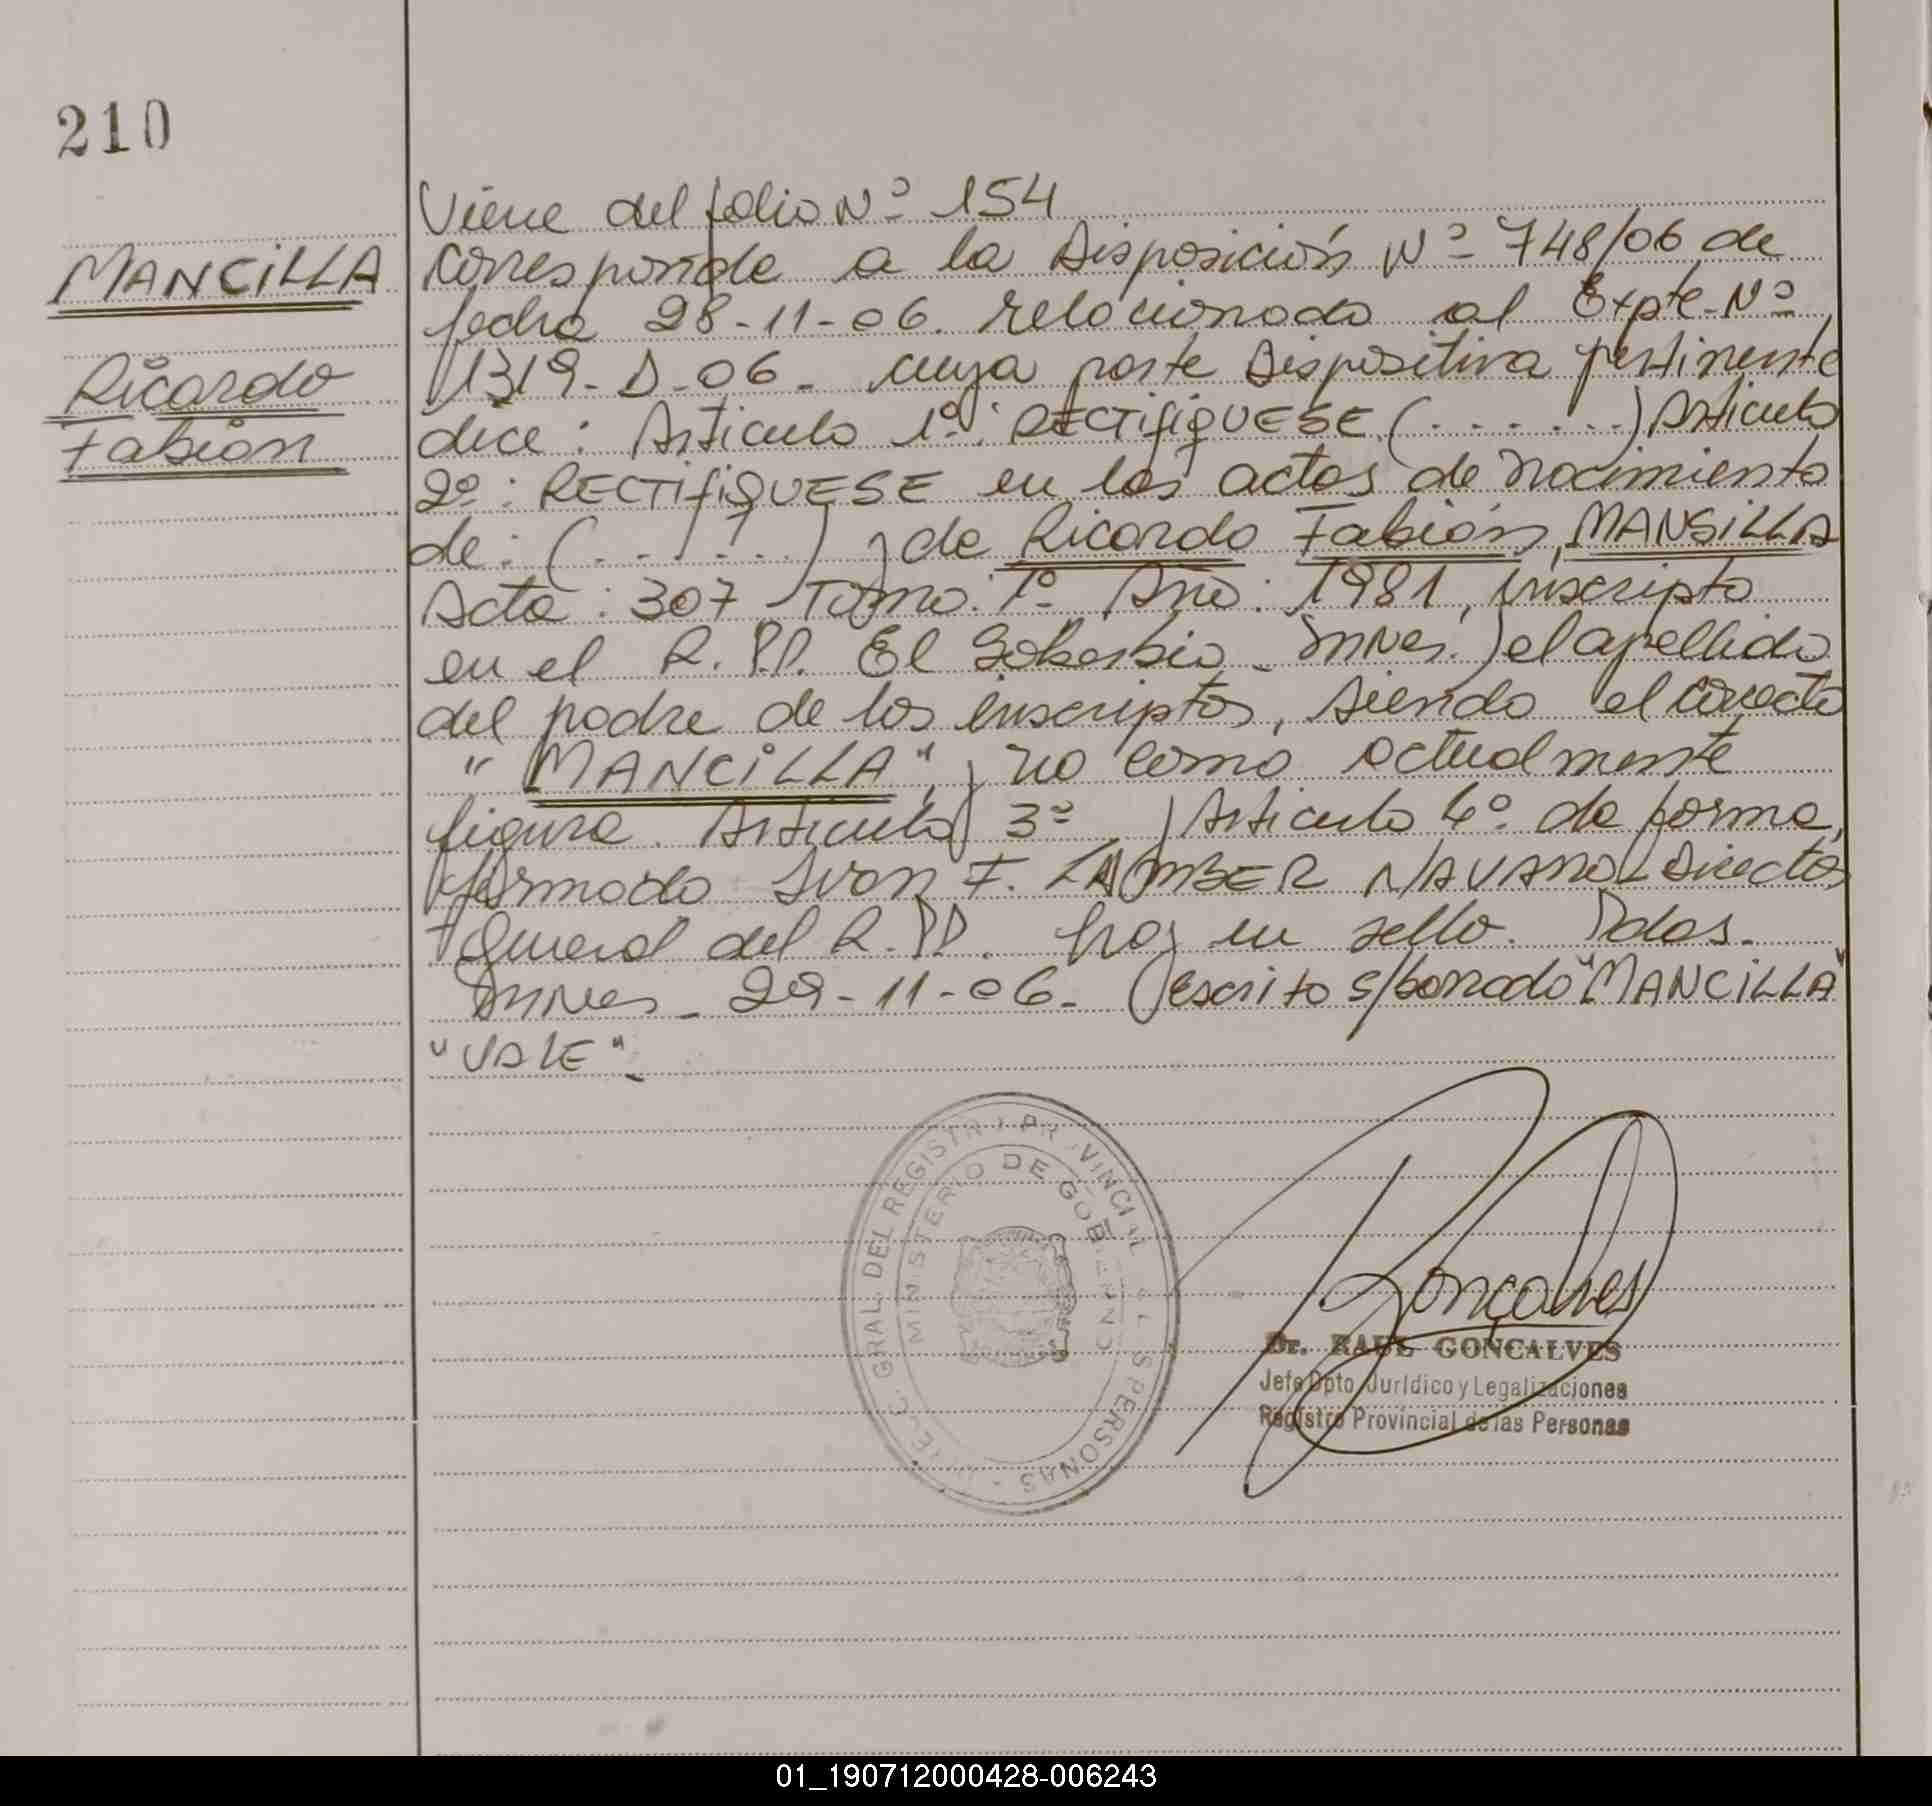 210
MANCILLA
Ricardo
Fabián
Viene del folio Nº 154
Corresponde a la Disposición Nº 748/06 de
fecha 28-11-06. relacionado al Expte. Nº
1319-D-06- cuya parte Dispositiva pertinente
dice: Articulo 1º: RECTIFIQUESE (......) Articulo
2º: RECTIFIQUESE en las actas de nacimiento
de: (......) y de Ricardo Fabián, MANSILLA
Acta: 307 Tomo: 1º Año: 1981, inscripto
en el R.P.P. El Soberbio - Mnes.) el apellido
del padre de los inscriptos, siendo el correcto
"MANCILLA", y no como actualmente
figura. Articulo 3º y Articulo 4º de forma,
firmado Ivan F. LAMBER NAVARRO Director
General del R.P.P. hay un sello. Pdas.
Mnes - 29-11-06- escrito s/borrado "MANCILLA"
"VALE"-
DIREC. GRAL. DEL REGISTRO PROVINCIAL DE LAS PERSONAS -
MINISTERIO DE GOBIERNO
Gonçalves
Dr. RAUL GONÇALVES
Jefe Dpto. Jurídico y Legalizaciones
Registro Provincial de las Personas
01_190712000428-006243